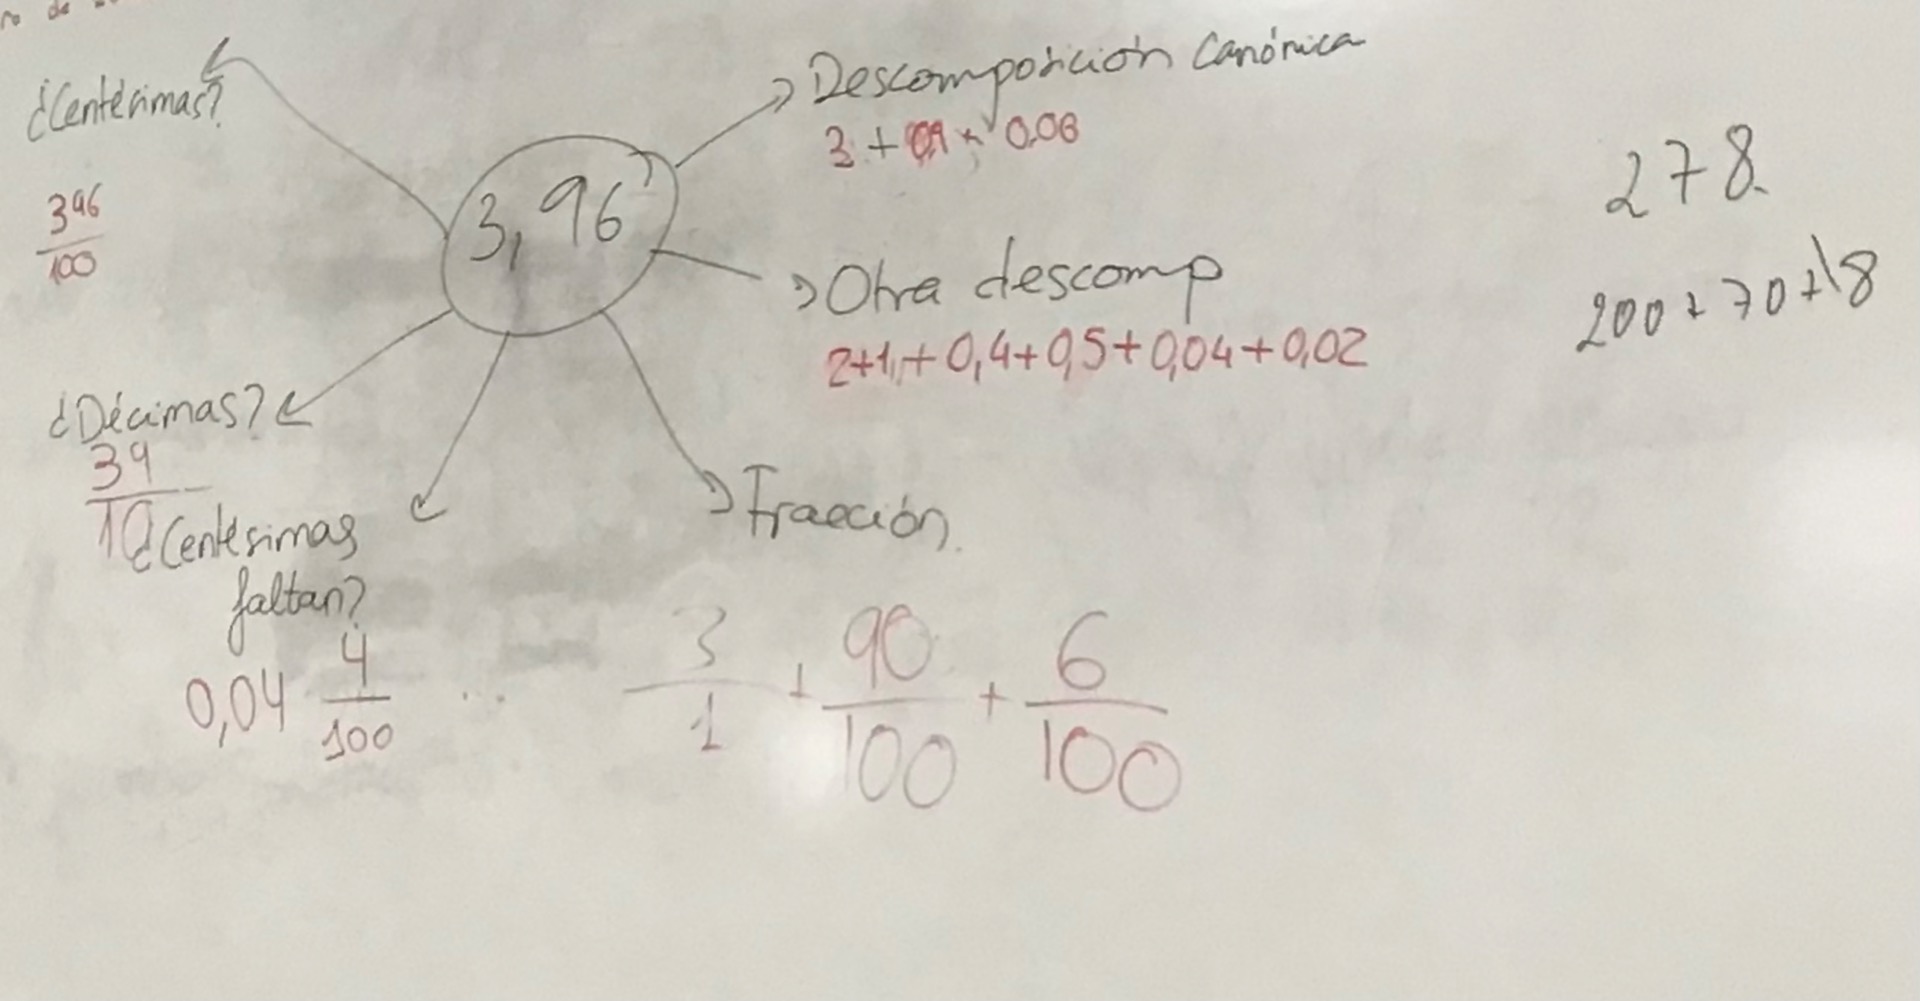 ¿Centésimas?
396
100
3,96
Descomposición Canónica
3 + 0,9 + 0.06
Otra descomp
2+1 + 0,4+0,5+0,04+0,02
278
200 + 70 + 8
¿Décimas?
39
10
¿Centésimas
faltan?
0,04 4
100
Fracción
3 + 90 + 6
1 100 100